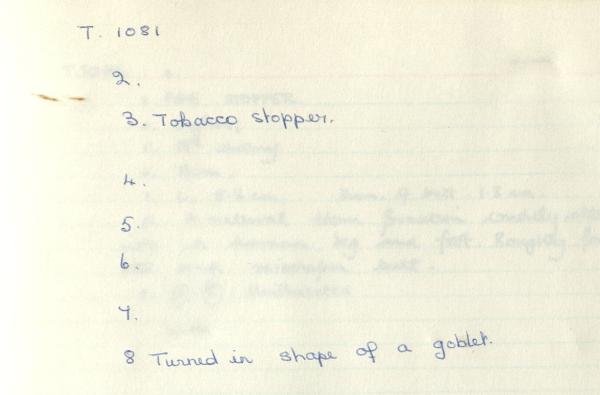 T. 1081
2.
3. Tobacco stopper.
4.
5.
6.
7.
8 Turned in shape of a goblet.